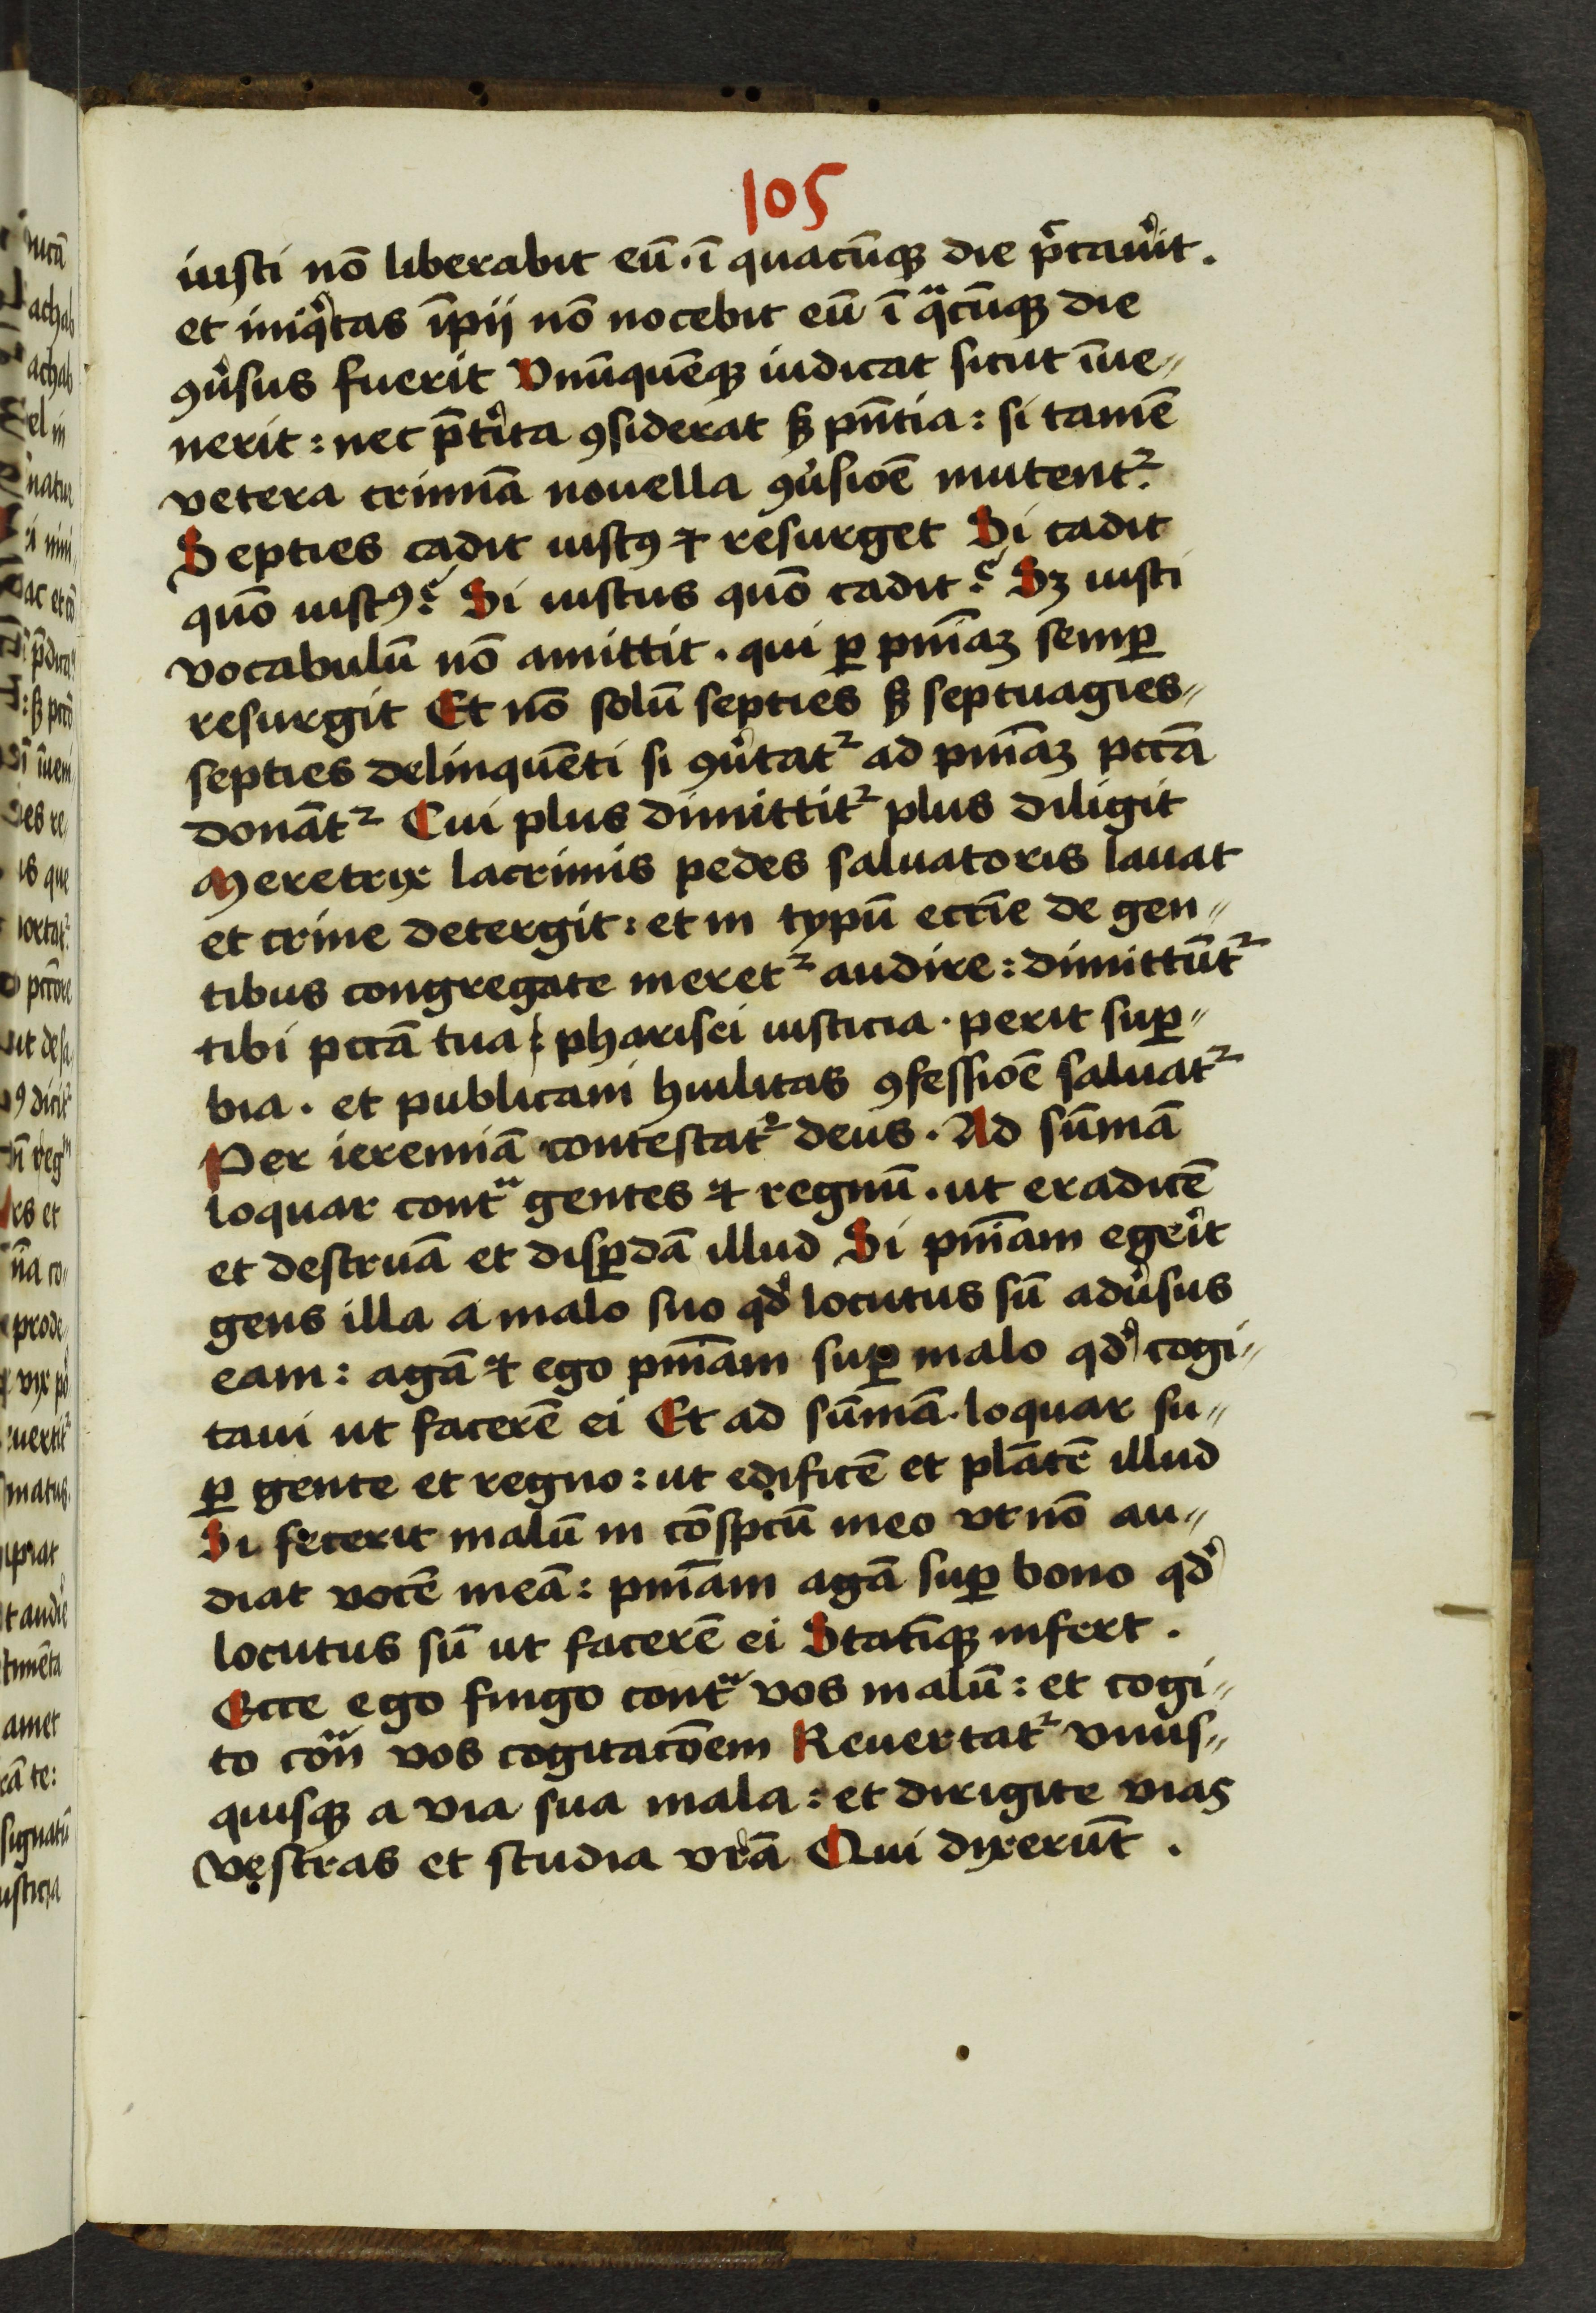 105
iusti nō liberabit eū · ī quacūqꝫ die p̄cauͥit .
et iniqͥtas īpij nō nocebit eū ī qͣcūqꝫ die
ꝯuͥsus fuerit Vnūquēqꝫ iudicat sicut īue〃
nerit : nec p̄tͥita ꝯsiderat sꝫ pn̄tia : si tamē
vetera crimīa nouella ꝯuͥsioē mutent᷑ .
Septies cadit iustꝰ ⁊ resurget Si cadit
quō iustꝰ ? Si iustus quō cadit ? Sꝫ iusti
vocabulū nō amittit . qui ꝑ pn̄iaꝫ semꝑ
resurgit Et nō solū septies sꝫ septuagies〃
septies delinquēti si ꝯuͥtat᷑ ad pn̄iaꝫ pccā
donāt᷑ Cui plus dimittit᷑ plus diligit
Meretrix lacrimis pedes saluatoris lauat
et crine detergit : et in typū eccīe de gen〃
tibus congregate meret᷑ audire : dimittūt᷑
tibi pccā tua : pharisei iusticia · perit suꝑ〃
bia · et publicani hūilitas ꝯfessioē saluat᷑
Per ieremiā contestat᷑ deus . Ad sūmā
loquar contͣ gentes ⁊ regnū . ut eradicē
et destruā et disꝑdā illud Si pn̄iam egeͥit
gens illa a malo suo qd̕ locutus sū aduͥsus
eam : agā ⁊ ego pn̄iam suꝑ malo qd̕ cogi〃
taui ut facerē ei Et ad sūmā · loquar su〃
ꝑ gente et regno : ut edificē et plātē illud
Si fecerit malū in cōspcū meo vt nō au〃
diat vocē meā : pn̄iam agā suꝑ bono qd̕
locutus sū ut facerē ei Statīqꝫ infert .
Ecce ego fingo contͣ vos malū : et cogi〃
to cōn vos cogitacōem Reuertat᷑ vnus〃
quisqꝫ a via sua mala : et dirigite vias
vestras et studia vrā Qui dixerūt .